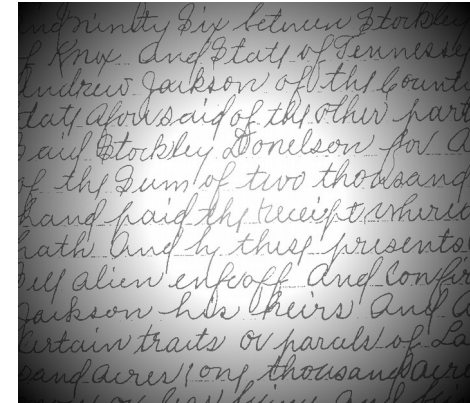 and ninety Six between Stockley
of Knox and State of Tennessee
Andrew Jackson of the Count
tate aforesaid of the other par
Said Stockley Donelson for a
of the Sum of two thousand
hand paid the receipt where
hath and by these presents
Sell alien enfeoff and Confir
Jackson his heirs and a
Certain traits or parcels of La
sand acres one thousand acre